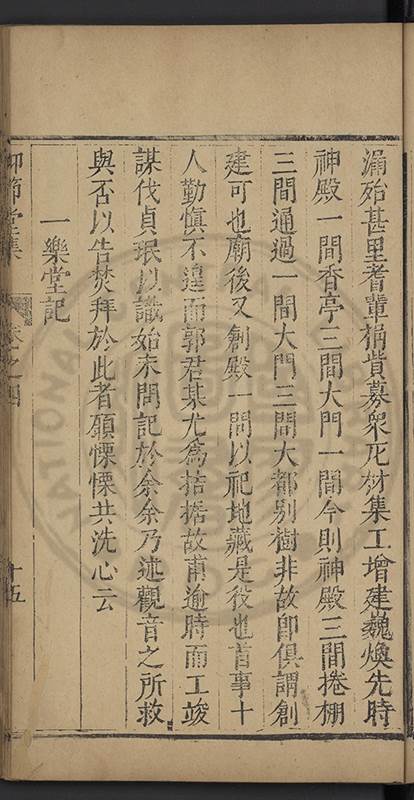 漏殆甚里耆輩捐貲募衆庀材集工增建巍煥先時
神殿一間香亭三間大門一間今則神殿三間捲棚
三間通過一間大門三間大都別樹非故卽俱謂創
建可也廟後又創殿一間以祀地藏是役也首事十
人勤愼不遑而郭君某尤爲拮据故甫逾時而工竣
謀伐貞珉以識始末問記於余余乃述觀音之所救
與否以告焚拜於此者願慄慄共洗心云
一樂堂記
仰節堂集
卷之四
十五